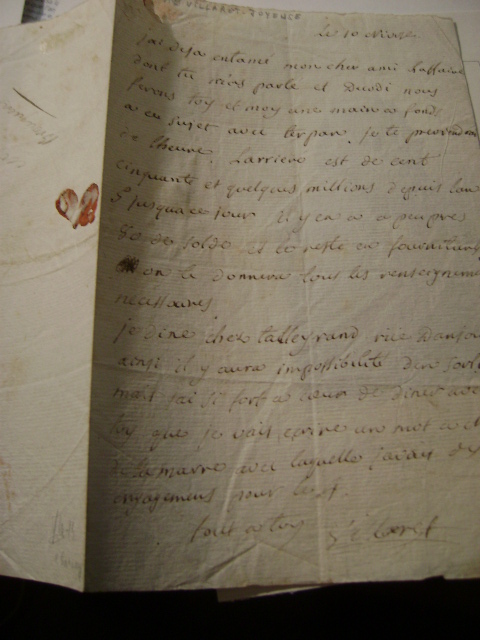 Le 10 Nivose
j'ai deja entamé mon cher ami l'affaire
dont tu m'as parlé et Duodi nous
ferons toy et moy une main a fond
a ce sujet avec
de l'heure. Larriere est de cent
cinquante et quelques millions depuis lan
5 jusqua ce jour il y en a a peu pres
de solde et le reste en fournitures
on te donnera tous les renseignemen
necessaires
je dine chez talleyrand rue Danjou
ainsi il y aura impossibilité den
mais j'ai si fort a coeur de diner avec
toy que je vais ecrire un mot a
avec laquelle javais des
engagemens pour le
tout a toy